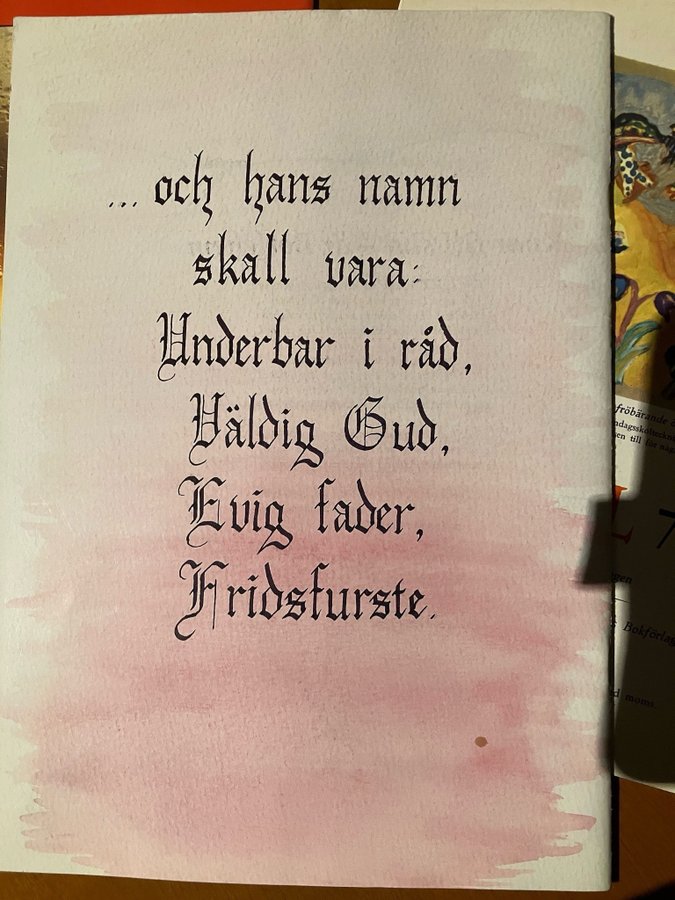 ... och hans namn
skall vara:
Underbar i råd,
Väldig Gud,
Evig fader,
Fridsfurste.
fröbärande
till för
L 7
Bokförlag
moms.